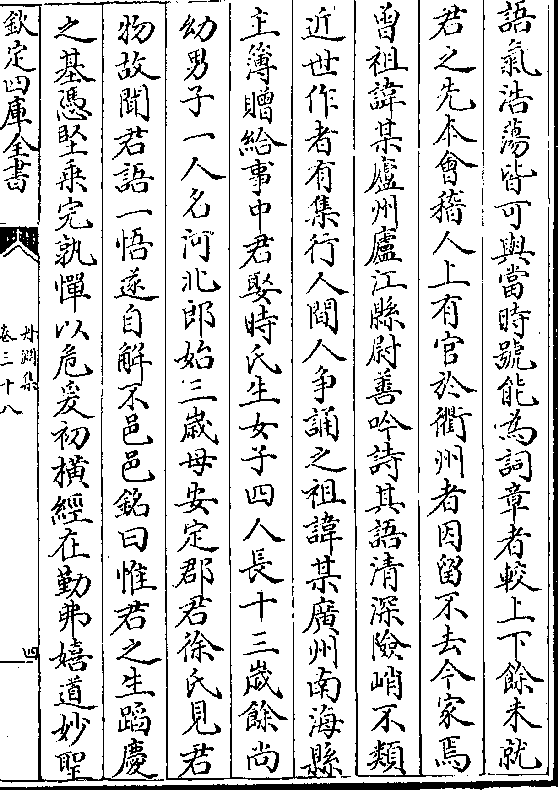 語氣浩蕩皆可與當時號能為詞章者較上下餘未就
君之先本會稽人上有官於衢州者因留不去今家焉
曾祖諱某廬州廬江縣尉善吟詩其語清深險峭不類
近世作者有集行人間人争誦之祖諱某廣州南海縣
主簿贈給事中君娶時氏生女子四人長十三歲餘尚
幼男子一人名河北郎始三歲母安定郡君徐氏見君
物故聞君語一悟遂自解不邑邑銘曰惟君之生蹈慶
之基憑堅乗完孰憚以危爰初横經在勤弗嬉道妙聖
欽定四庫全書
丹淵集
卷三十八
四